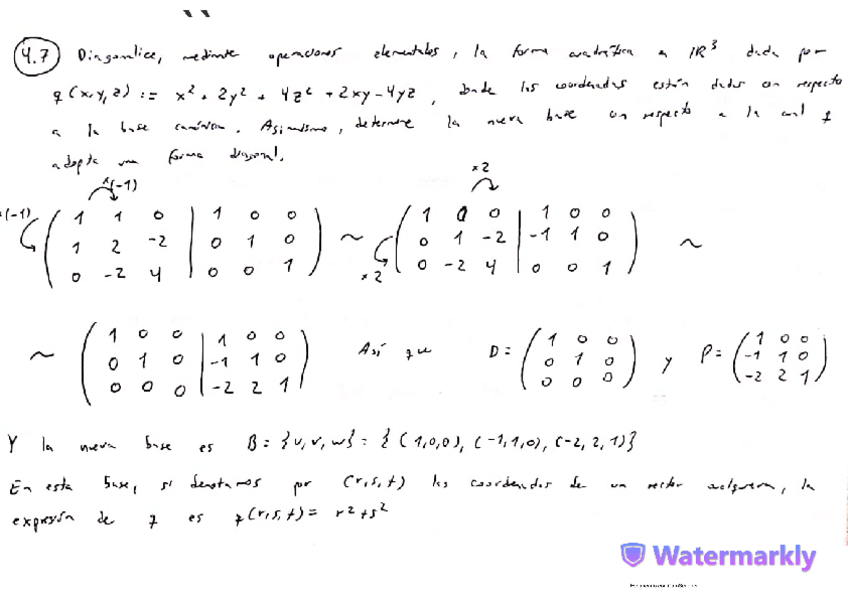 4.7 Diagonalice, mediante operaciones elementales, la forma cuadrática en ℝ³ dada por
q(x,y,z) := x² + 2y² + 4z² + 2xy - 4yz, donde las coordenadas están dadas con respecto
a la base canónica. Asimismo, determine la nueva base con respecto a la cual q
adopta una forma diagonal.
x(-1) x2
x(-1) ( 1 1 0 | 1 0 0 ) ~ ( 1 0 0 | 1 0 0 ) ~
( 1 2 -2 | 0 1 0 ) ( 0 1 -2 | -1 1 0 )
( 0 -2 4 | 0 0 1 ) x2 ( 0 -2 4 | 0 0 1 )
~ ( 1 0 0 | 1 0 0 ) Así que D = ( 1 0 0 ) y P = ( 1 0 0 )
( 0 1 0 | -1 1 0 ) ( 0 1 0 ) ( -1 1 0 )
( 0 0 0 | -2 2 1 ) ( 0 0 0 ) ( -2 2 1 )
Y la nueva base es B = {u, v, w} = { (1,0,0), (-1,1,0), (-2,2,1)}
En esta base, si denotamos por (r,s,t) las coordenadas de un vector cualquiera, la
expresión de q es q(r,s,t) = r² + s²
Watermarkly